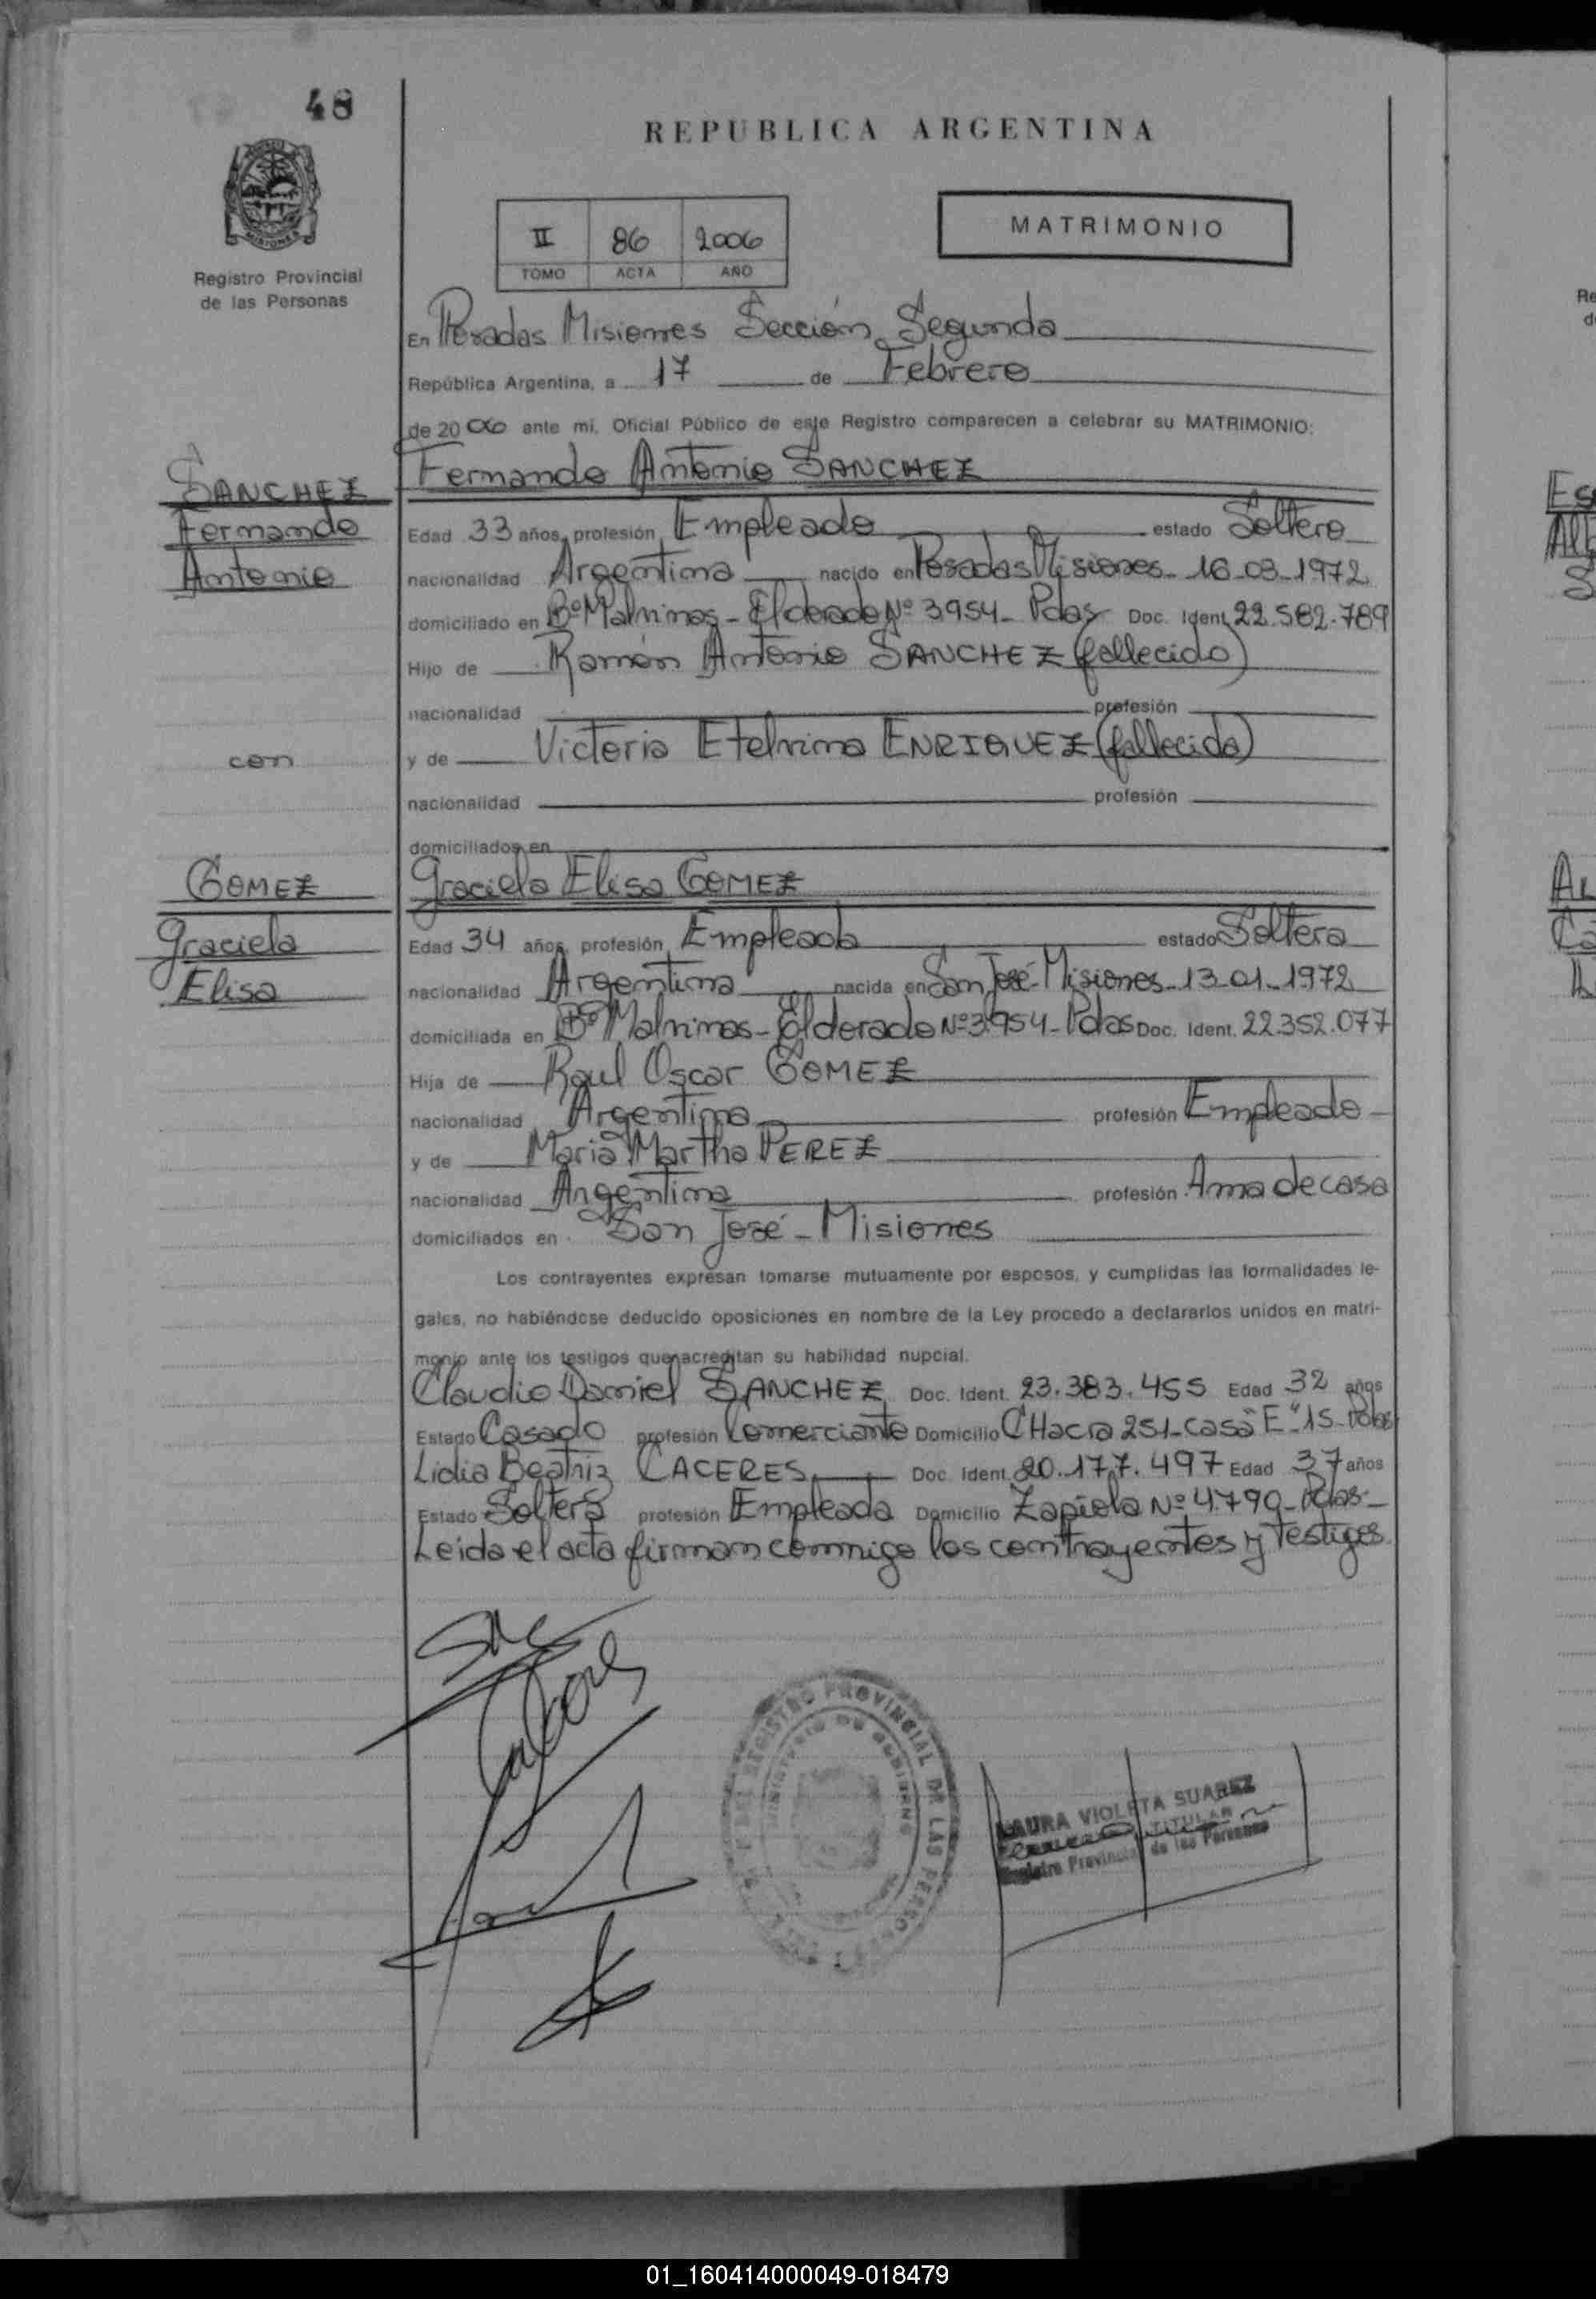 48
REPUBLICA ARGENTINA
MATRIMONIO
II 86 2006
TOMO ACTA AÑO
Registro Provincial
de las Personas
En Posadas Misiones Sección Segunda
República Argentina, a 17 de Febrero
de 2006 ante mi, Oficial Público de este Registro comparecen a celebrar su MATRIMONIO:
SANCHEZ
Fernando
Antonio
Fernando Antonio SANCHEZ
Edad 33 años, profesión Empleado estado Soltero
nacionalidad Argentina nacido en Posadas Misiones - 16-03-1972
domiciliado en Bº Malvinas - Eldorado Nº 3954 - Pdas Doc. Ident. 22.582.789
Hijo de Ramón Antonio SANCHEZ (fallecido)
nacionalidad profesión
con
y de Victoria Etelvina ENRIQUEZ (fallecida)
nacionalidad profesión
domiciliados en
GOMEZ
Graciela
Elisa
Graciela Elisa GOMEZ
Edad 34 años, profesión Empleada estado Soltera
nacionalidad Argentina nacida en San José - Misiones - 13-01-1972
domiciliada en Bº Malvinas - Eldorado Nº 3954 - Pdas Doc. Ident. 22.352.077
Hija de Raul Oscar GOMEZ
nacionalidad Argentina profesión Empleado
y de Maria Martha PEREZ
nacionalidad Argentina profesión Ama de casa
domiciliados en San José - Misiones
Los contrayentes expresan tomarse mutuamente por esposos, y cumplidas las formalidades le-
gales, no habiéndose deducido oposiciones en nombre de la Ley procedo a declararlos unidos en matri-
monio ante los testigos que acreditan su habilidad nupcial.
Claudio Daniel SANCHEZ Doc. Ident. 23.383.455 Edad 32 años
Estado Casado profesión Comerciante Domicilio CHacra 251 - casa "E" 15 - Pdas
Lidia Beatriz CACERES Doc. Ident. 20.177.497 Edad 37 años
Estado Soltera profesión Empleada Domicilio Zapiola Nº 4790 - Pdas -
Leida el acta firman conmigo los contrayentes y testigos
REGISTRO PROVINCIAL DE LAS PERSONAS
MINISTERIO DE GOBIERNO
LAURA VIOLETA SUAREZ
TITULAR
Registro Provincial de las Personas
01_160414000049-018479